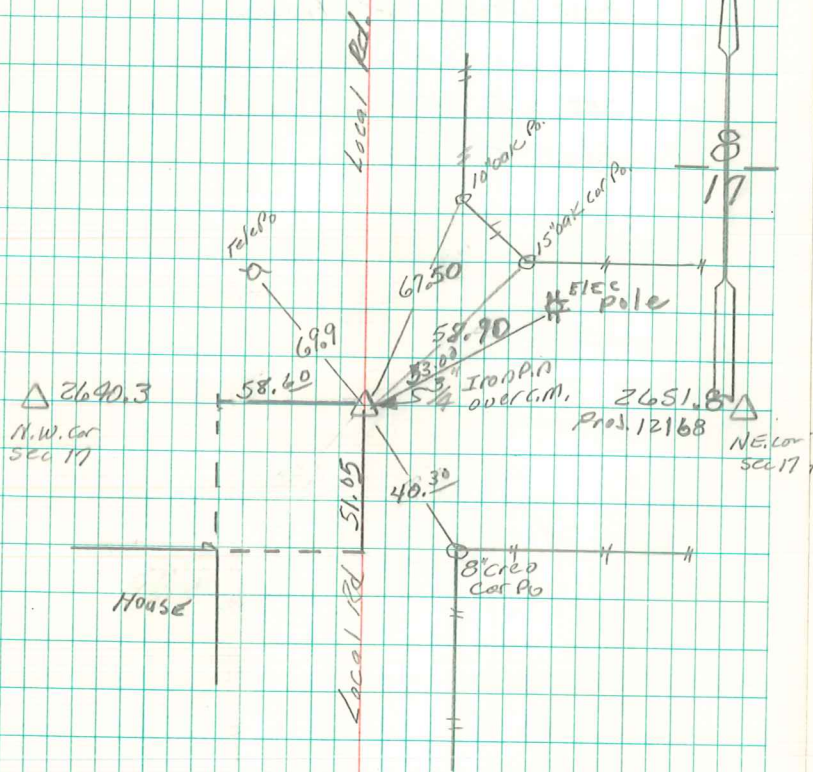 Local Rd.
10" oak Po.
8
17
15" oak cor. Po.
Tele Po
67.50
Elec
Pole
69.9
58.90
53.00
5/8"
Iron Pin
over C.M.
58.60
2640.3
N.W. Cor
Sec 17
2651.8
Proj. 12168
NE. cor
Sec 17
51.05
40.30
8" Creo
Cor Po
House
Local Rd